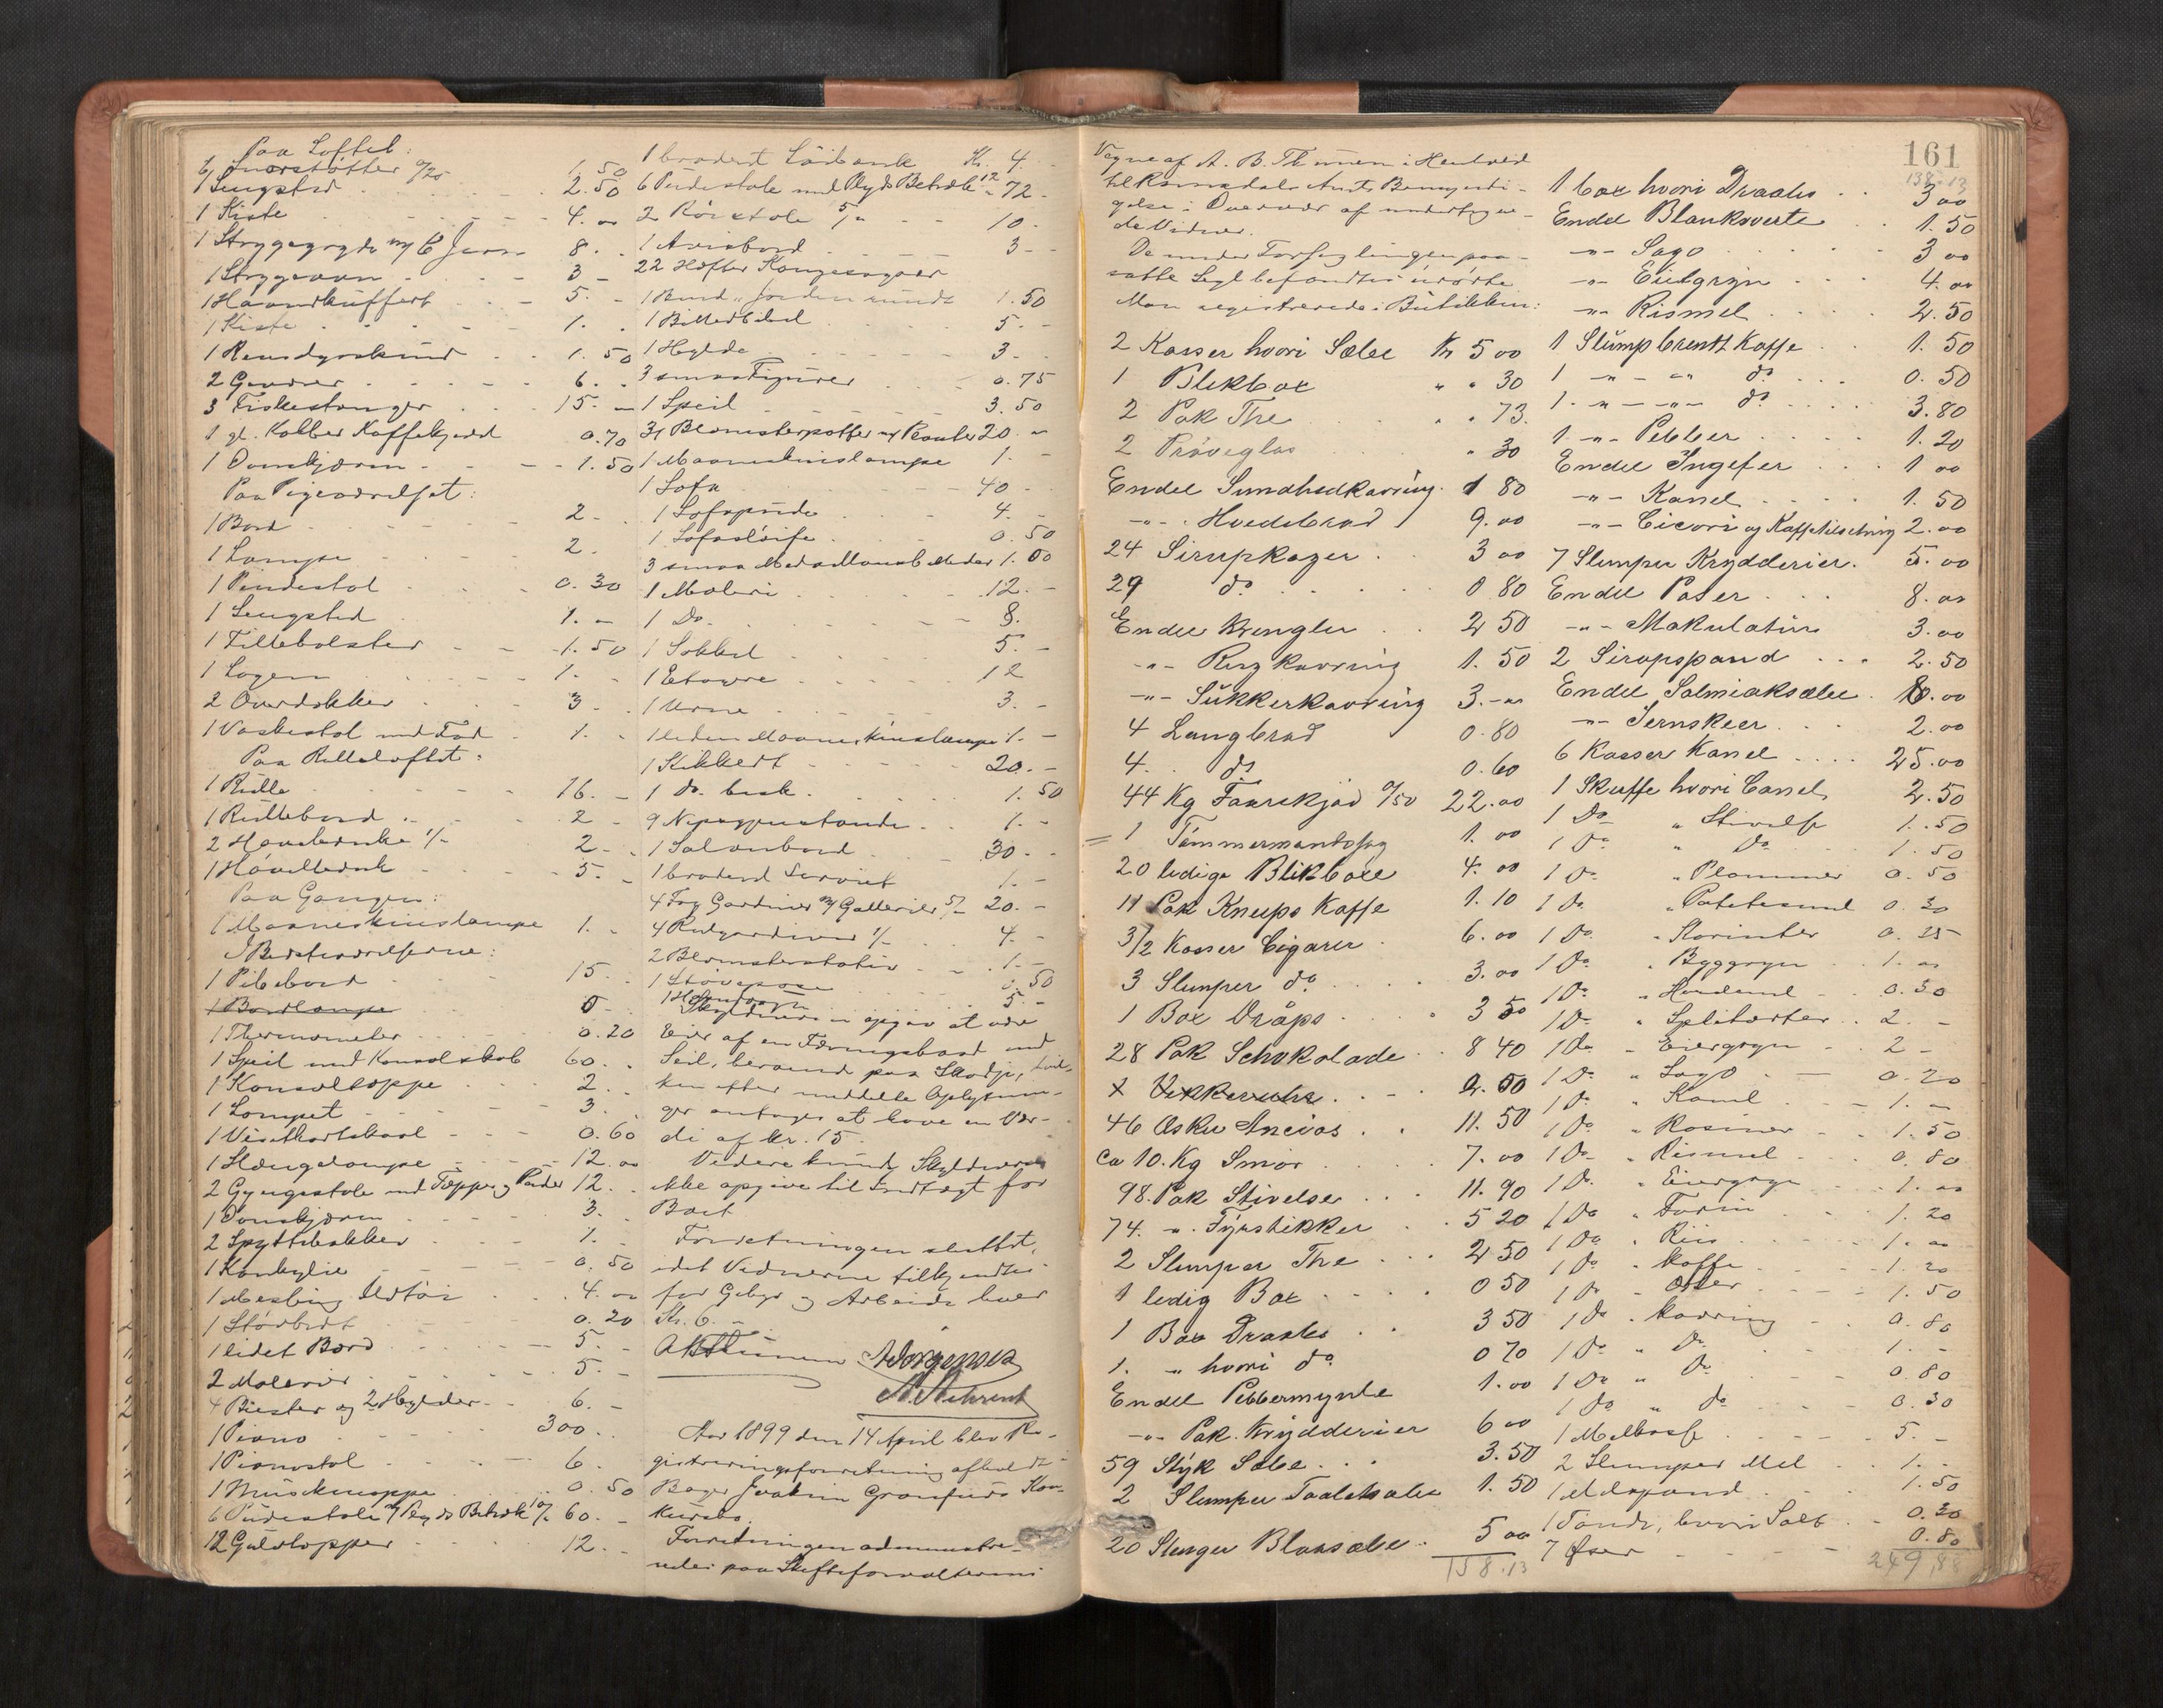 Paa Loftet:
6 Snorstøtter 0/25 1.50
1 Sengsted 2.50
1 Kiste 4.00
1 Strygegryde m/ 6 Jern 8.
1 Strygeovn 3 -
1 Haandkuffert 5. -
1 Kiste 1.
1 Rensdyrskind 1.50
2 Geværer 6.
3 Fiskestænger 15. -
1 gl. Kobber Kaffekjedel 0.70
1 Ovnskjærm 1.50
Paa Pigeværelset:
1 Bord 2 -
1 Lampe 2.
1 Pindestol 0.30
1 Sengsted 1. -
1 Fillebolster 1.50
1 Lagen 1.
2 Overdækker 3 -
1 Vaskestol med Fad 1.
Paa Rulleloftet:
1 Rulle 16. -
1 Rullebord 2 -
2 Høvlebænke 1/- 2 -
1 Høvlbænk 5. -
Paa Gangen:
1 Maaneskinslampe 1. -
I Bestværelserne:
1 Pibebord 15.
1 Bordlampe 5 -
1 Thermometer 0.20
1 Speil med Konsolskab 60.
1 Konsoltæppe 2.
1 Lampet 3.
1 Visitkortskaal 0.60
1 Hængelampe 12.00
2 Gyngestole med Tæpper og Puder 12.
1 Ovnskjærm 3.
2 Spyttebakker 1.
1 Konkylie 0.50
1 Messing Ildtøi 4.00
1 Støvbret 0.20
1 lidet Bord 5. -
2 Malerier 5. -
4 Büster og 2 Hylder 6. -
1 Piano 300.
1 Pianostol 6. -
1 Musikmappe 0.50
6 Pudestole m/ Plyds Betræk 10/- 60. -
12 Gulvtæpper 12. -
1 broderet Løibænk Kr. 4 -
6 Pudestole med Plyds Betræk 12/- 72 -
2 Rørstole 5/- 10 -
1 Avisbord 3 -
22 Hefter Kongesagaer
1 Bind "Jorden rundt 1.50
1 Billedbibel 5. -
1 Hylde 3 -
3 smaa Figurer 0.75
1 Speil 3.50
31 Blomsterpotter m/ Planter 20. -
1 Maaneskinslampe 1. -
1 Sofa 40 -
1 Sofapude 4. -
1 Sofasløife 0.50
3 smaa Medallionbilleder 1.00
1 Maleri 12. -
1 Do. 8.
1 Sokkel 5. -
1 Etagere 12
1 Urne 3. -
1 liden Maaneskinslampe 1. -
1 Kikkert 20. -
1 do. bræk. 1.50
9 Nipsgjenstande 1. -
1 Salonbord 30 -
1 broderet Serviet 1. -
4 Fag Gardiner m/ Gallerier 5/- 20. -
4 Rulgardiner 1/- 4. -
2 Blomsterstativ 1. -
1 Støvepose 0.50
1 Haandvogn 5 -
Skyldneren opgav at være
Eier af en Færingsbaad med
Seil, beroende paa Skodje, hvil-
ken efter meddelte Oplysnin-
ger antages at have en Vær-
di af kr. 15.
Videre kunde Skyldneren
ikke opgive til Indtægt for
Boet
Forretningen sluttet,
idet Vidnerne tilkjendtes
for Gebyr og Arbeide hver
Kr. 6. -
AB Thunem A Jørgensen
A. Behrent
Aar 1899 den 14 April blev Re-
gistreringsforretning afholdt i
Bager Joakim Granfurs Kon-
kursbo.
Forretningen administre-
redes paa Skifteforvalterens
161
Vegne af A. B. Thunem i Henhold
til Romsdals Amts Bemyndi-
gelse i Overvær af undertegne-
de Vidner.
De under Forseglingen paa-
satte Segl befandtes urørte.
Man registrerede i Butikken:
2 Kasser hvori Sæbe Kr 5 00
1 Blikbox " " 30
2 Pak The " " 73.
2 Prøveglas " 30
Endel Sundhedkavring 1 80
-"- Hvedebrød 9.00
24 Sirupkager 3 00
29 do 0 80
Endel Kringler 2 50
-"- Rugkavring 1.50
-"- Sukkerkavring 3.-00
4 Langbrød 0.80
4. do 0.60
44 Kg Faarekjød 0/50 22.00
= 1 Tømmermandssag 1.00
20 ledige Blikboxe 4.00
11 Pak Kneips Kaffe 1.10
3 1/2 Kasser Cigarer 6.00
3 Slumper do 3.00
1 Box Drops 3 50
28 Pak Schokolade 8 40
1 Vekkeruhr 2.50
46 Æsker Ancivas 11.50
ca 10. Kg Smør 7.00
98. Pak Stivelse 11.90
74. " Fyrstikker 5 20
2 Slumper The 2 50
1 ledig Box 0 50
1 Box Draabs 3 50
1. " hvori do 0 70
Endel Pebbermynte 1.00
-"- Pak. Krydderier 6 00
59 Styk Sæbe 3.50
2 Slumper Toaletsæbe 1.50
20 Stenger Blaasæbe 5 00
158.13
138.13
1 box hvori Draabs 3 00
Endel Blanksverte 1.50
-"- Sago 3 00
-"- Eiergryn 4.00
-"- Rismel 2.50
1 Slump brendt Kaffe 1.50
1 -"- -"- do 0.50
1. -"- -"- do 3.80
1 -"- Pebber 1.20
Endel Ingefer 1 00
-"- Kanel 1.50
-"- Cicori og Kaffetilsetning 2.00
7 Slumper Krydderier 5.00
Endel Poser 8.00
-"- Makulatur 3.00
2 Siropspand 2.50
Endel Salmiaksæbe 10.00
-"- Jernskeer 2.00
6 Kasser Kanel 25.00
1 Skuffe hvori Canel 2.50
1 Do " Stivelse 1.50
1 Do " Do 1.50
1 Do " Plommer 0.50
1 Do " Potetesmel 0.30
1 Do " Korinter 0.25
1 Do " Byggryn 1.00
1 Do " Hvedemel 0.30
1 Do " Splitærter 2. -
1 Do " Eiergryn 2 -
1 Do " Sago 0.20
1 Do " Kanel 1. -
1 Do " Rosiner 1.50
1 Do " Rismel 0.80
1 Do " Eiergryn 1.00
1 Do " Farin 1.20
1 Do " Riis 1.00
1 Do " Kaffe 1.20
1 Do " 1.50
1 Do " Kavring 0.80
1 Do " Do 1. -
1 Do " Do 0.80
1 Do " Do 0.30
1 Melkasse 5. -
2 Slumper Mel 1. -
1 Melspand 1.50
1 Tønde, hvori Salt 0.30
7 Øser 0.80
249,88